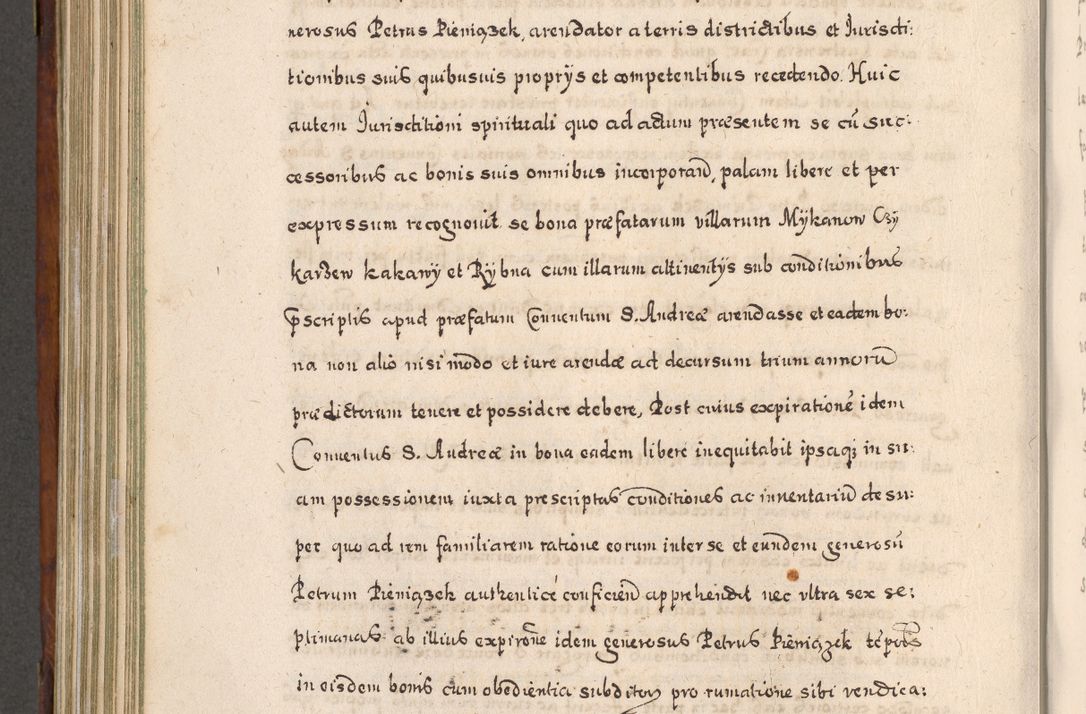 nerosus Petrus Pieniązek, arendator a terris districtibus et Jurisdi:
tionibus suis quibusuis proprÿs et competentibus recedendo. Huic
autem Jurisdictioni spirituali quo ad actum præsentem se cũ suc:
cessoribus ac bonis suis omnibus incorporand̃, palam libere et per
expressum recognouit se bona præfatarum villarum Mÿkanow Czÿ
karzew kakawÿ et Rÿbna cum illarum attinentÿs sub conditionibus
p̃scriptis apud præfatum Conuentum S. Andreæ arendasse et eadem bo:
na non alio nisi modo et iure arendæ ad decursum trium annorũ
prædictorum tenere et possidere debere, Post cuius expirationẽ idem
Conuentus S. Andreæ in bona eadem libere inequitabit ipsaqꝫ in su:
am possessionem iuxta prescriptas conditiones ac inuentariũ desu:
per quo ad rem familiarem ratione eorum inter se et eundem generosũ
Petrum Pieniązek authentice conficien̄ apprehendit nec vltra sex se:
ptimanas ab illius expirõne idem generosus Petrus Pieniązek
in eisdem bonis cum obedientia subditorꝝ pro rumatione sibi vendica: